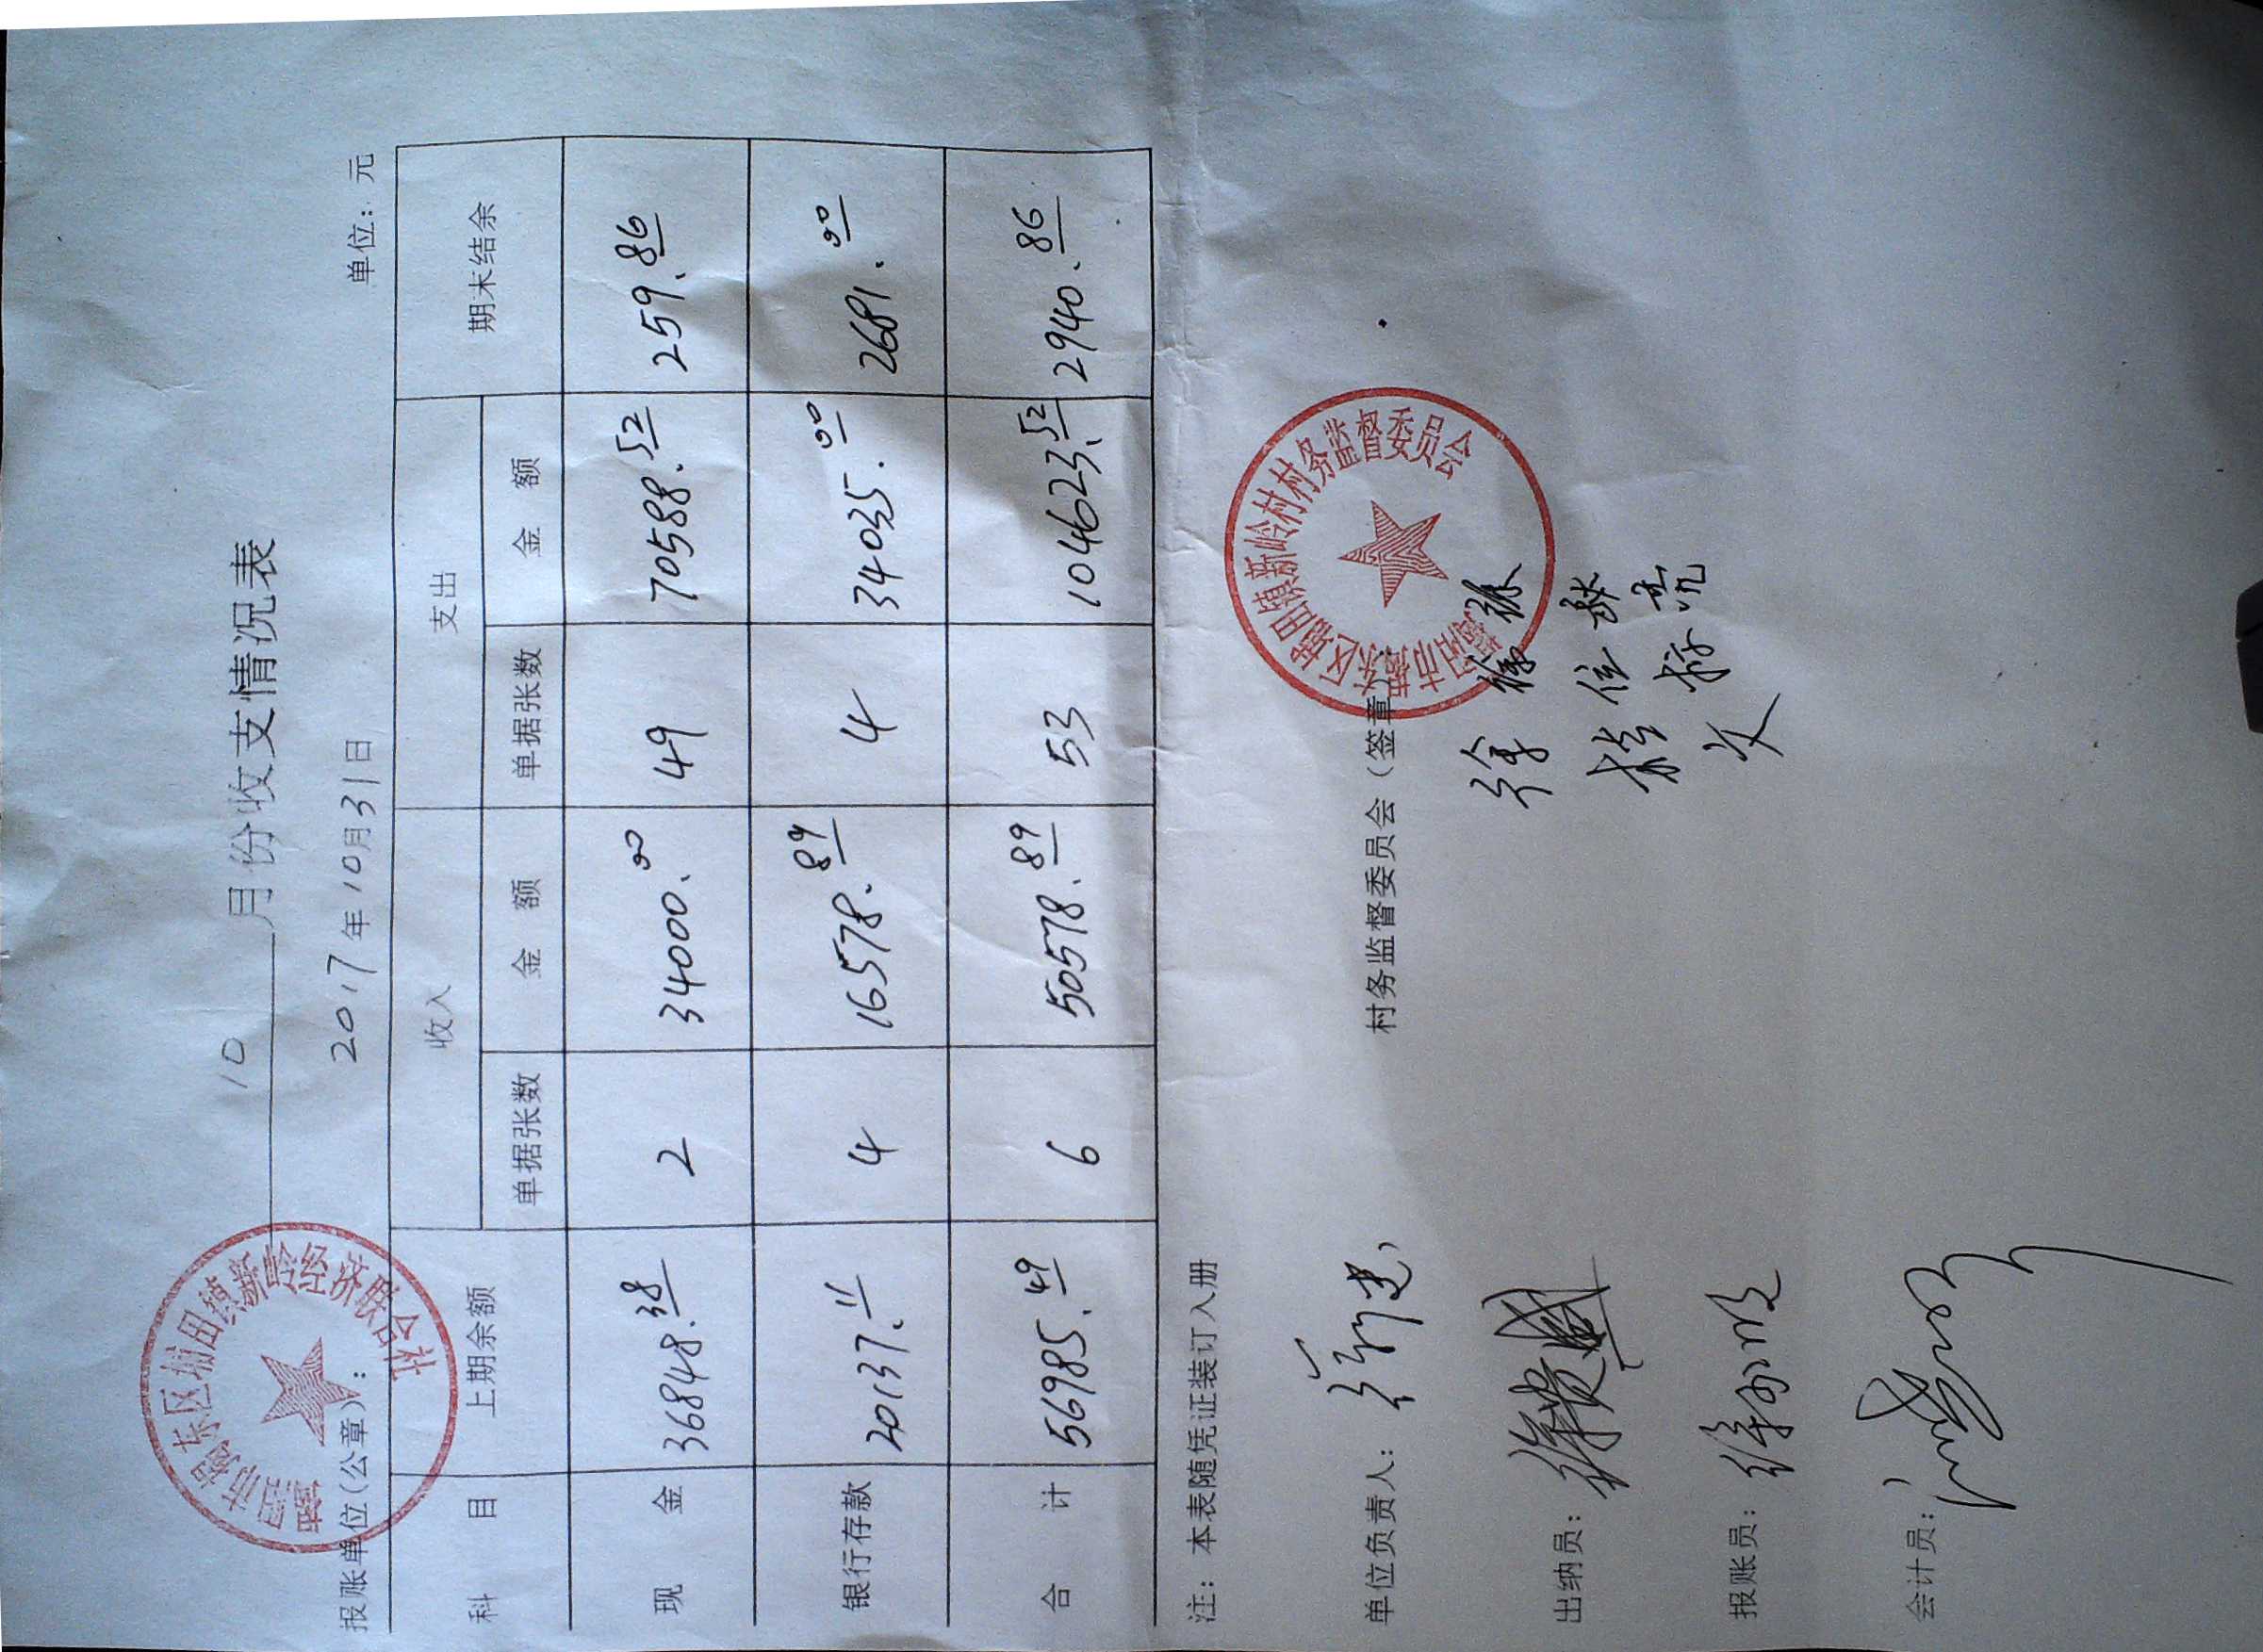 10月份收支情况表
2017年10月31日
报账单位(公章): 单位:元
揭阳市揭东区埔田镇新岭经济联合社
科目 上期余额 收入 支出 期末结余
单据张数 金额 单据张数 金额
现金 36848.38 2 34000.00 49 70588.52 259.86
银行存款 20137.11 4 16578.89 4 34035.00 2681.00
合计 56985.49 6 50578.89 53 104623.52 2940.86
注:本表随凭证装订入册
单位负责人: 村务监督委员会(签章)
揭阳市揭东区埔田镇新岭村村务监督委员会
出纳员:
报账员:
会计员: